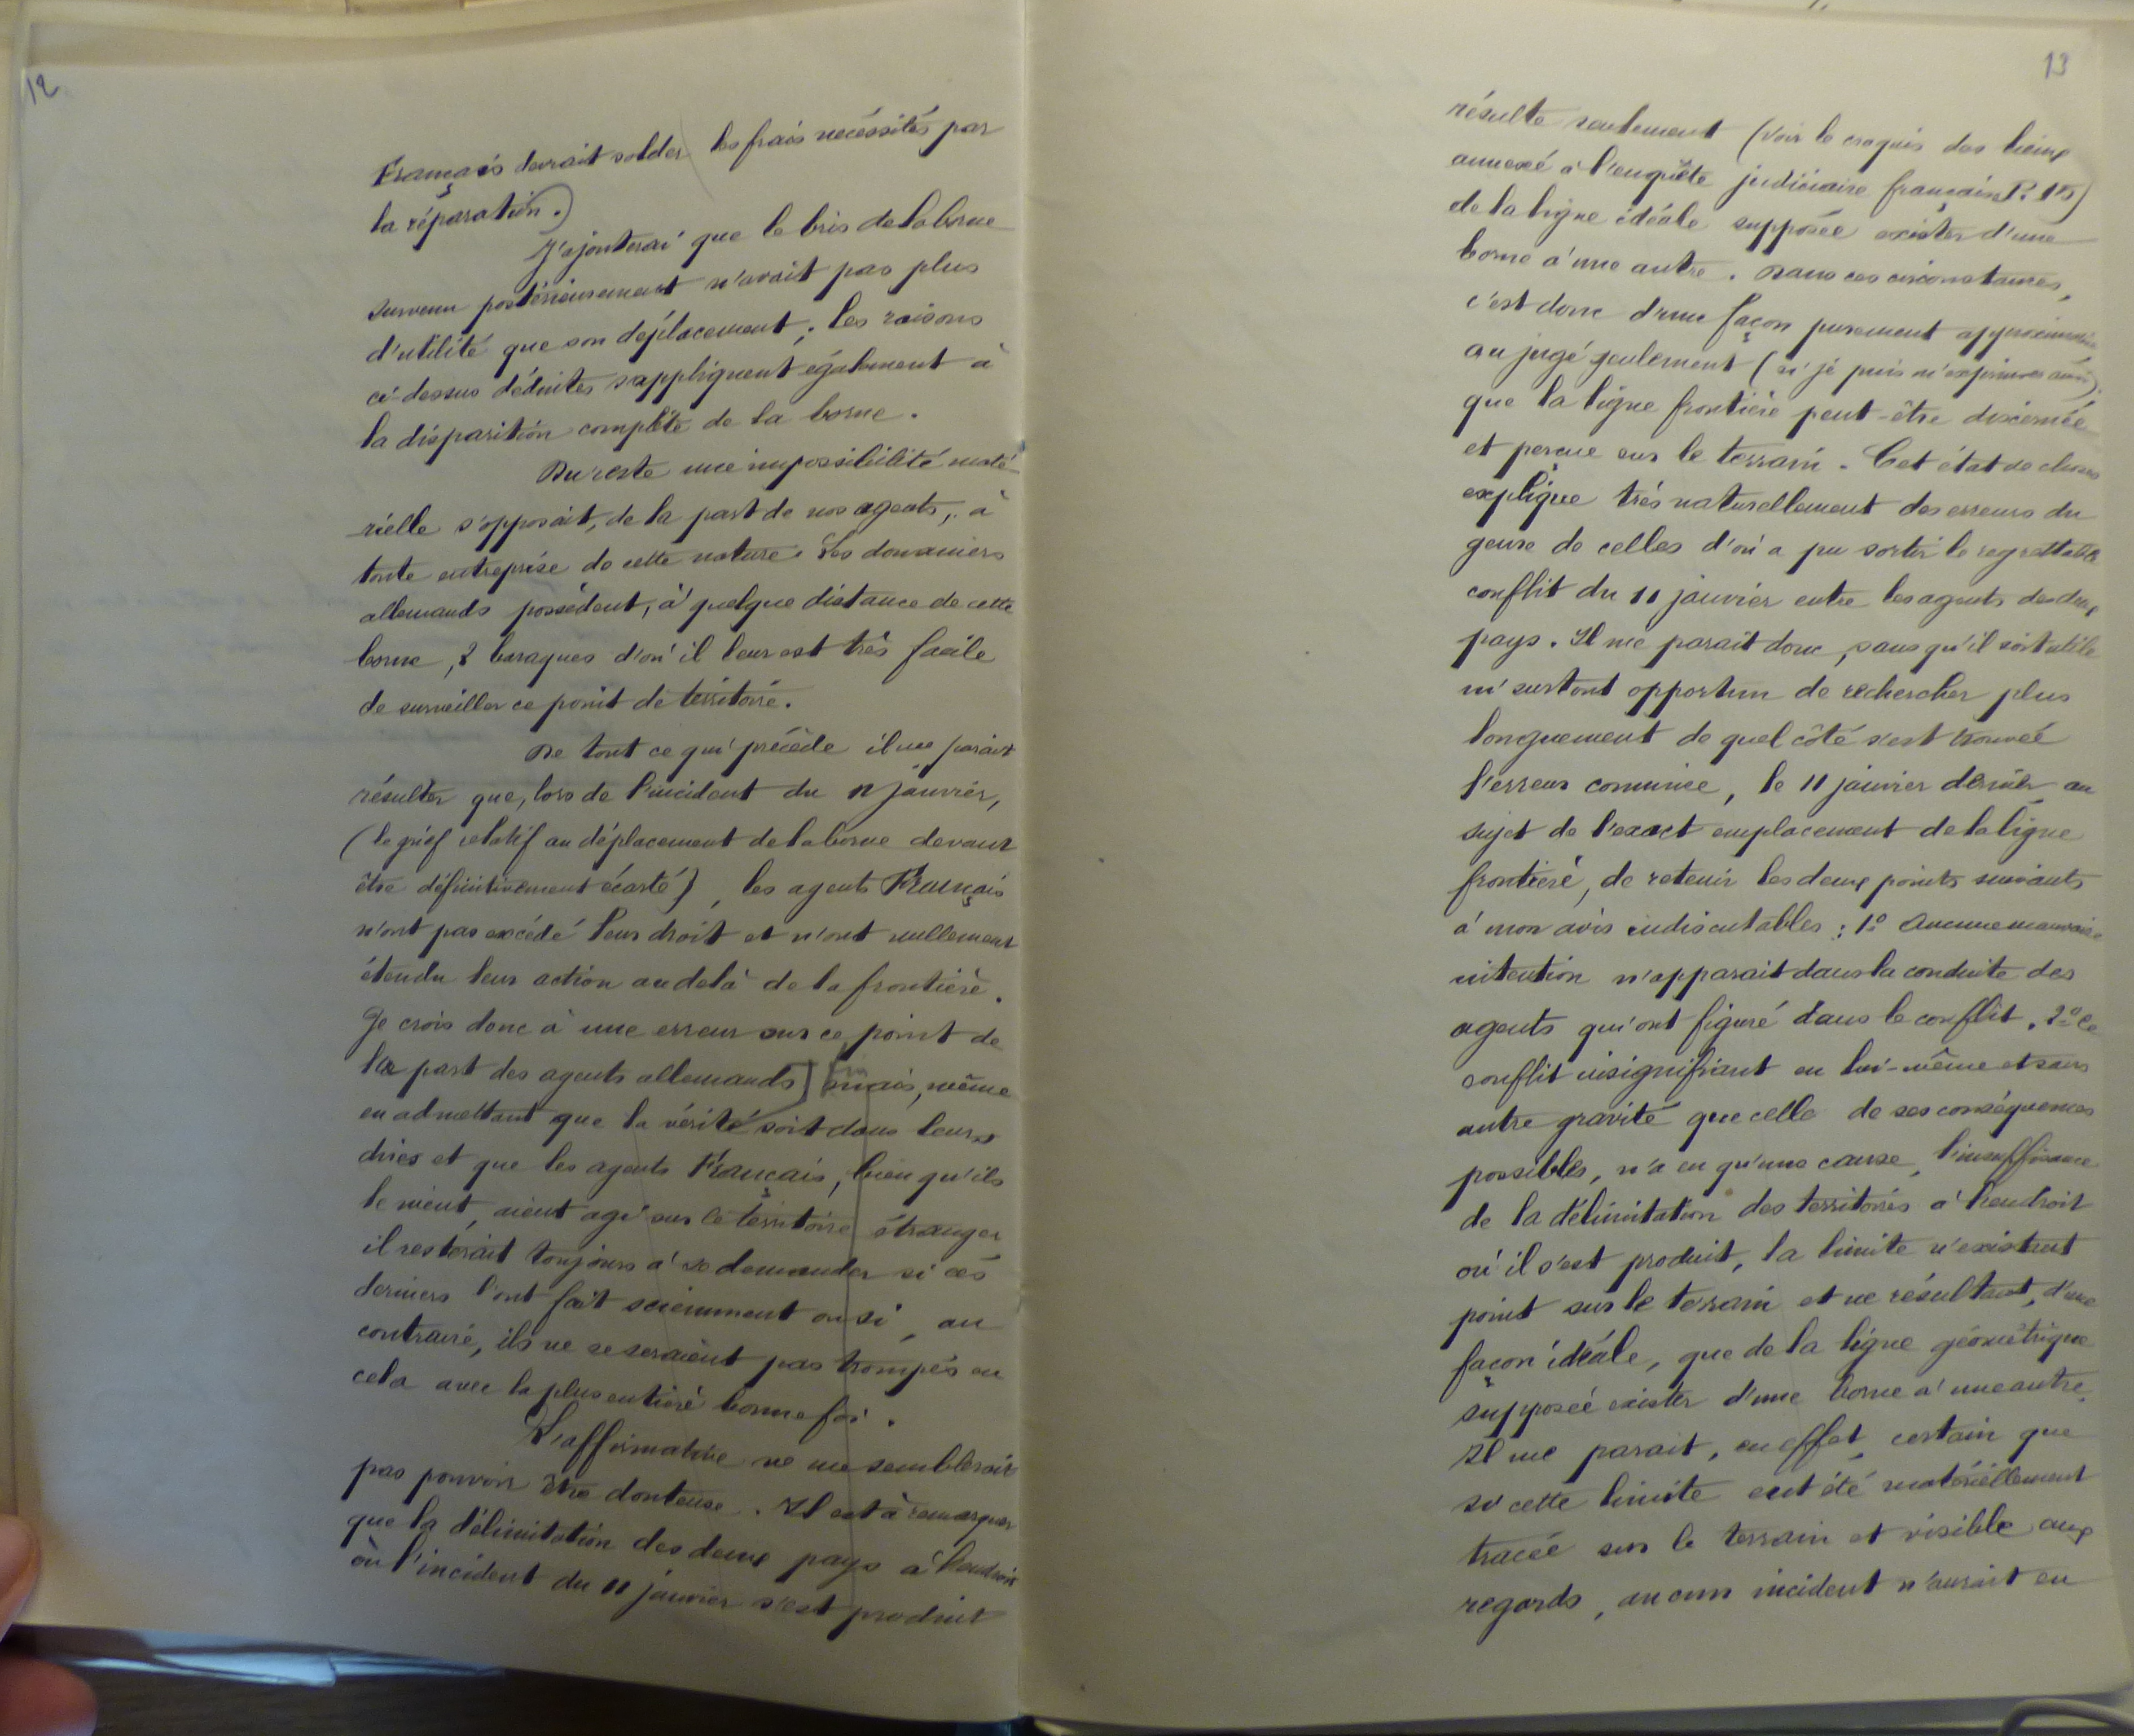 12
Français devrait solder les frais nécéssités par
la réparation.)
J'ajouterai que le bris de la borne
survenu postérieusement n'avait pas plus
d'utilité que son déplacement ; les raisons
ci-dessus déduites s'appliquent également à
la disparition complète de la borne.
Du reste une impossibilité maté-
rielle s'opposait, de la part de nos agents, à
toute entreprise de cette nature. Les douaniers
allemands possèdent, à quelque distance de cette
borne, 2 baraques d'où il leur est très facile
de surveiller ce point de territoire.
De tout ce qui précède il me parait
résulter que, lors de l'incident du 11 janvier,
(le grief relatif au déplacement de la borne devant
être définitivement écarté), les agents Français
n'ont pas excédé leur droit et n'ont nullement
étendu leur action au delà de la frontière.
Je crois donc à une erreur sur ce point de
la part des agents allemands] mais, même
en admettant que la vérité soit dans leurs
dires et que les agents Français, bien qu'ils
le nient, aient agi sur le territoire étranger
il resterait toujours à se demander si ces
derniers l'ont fait sciemment ou si, au
contraire, ils ne se seraient pas trompés en
cela avec la plus entière bonne foi.
L'affirmative ne me semblerait
pas pouvoir être douteuse. Il est à remarquer
que la délimitation des deux pays à l'endroit
où l'incident du 11 janvier s'est produit
13
résulte seulement (voir le croquis des lieux
annexé à l'enquête judiciaire française P. 15)
de la ligne idéale supposée exister d'une
borne à une autre. Dans ces circonstances,
c'est donc d'une façon purement approximative
au jugé seulement (si je puis m'exprimer ainsi)
que la ligne frontière peut-être discernée
et perçue sur le terrain. Cet état de choses
explique très naturellement des erreurs du
genre de celles d'où a pu sortir le regrettable
conflit du 11 janvier entre les agents des deux
pays. Il me parait donc, sans qu'il soit utile
ni surtout opportun de rechercher plus
longuement de quel côté s'est trouvée
l'erreur commise, le 11 janvier dernier au
sujet de l'exact emplacement de la ligne
frontière, de retenir les deux points suivants
à mon avis indiscutables : 1º Aucune mauvaise
intention n'apparait dans la conduite des
agents qui ont figuré dans le conflit. 2º Ce
conflit insignifiant en lui-même et sans
autre gravité que celle de ses conséquences
possibles, n'a eu qu'une cause, l'insuffisance
de la délimitation des territoires à l'endroit
où il s'est produit, la limite n'existant
point sur le terrain et ne résultant, d'une
façon idéale, que de la ligne géométrique
supposée exister d'une borne à une autre.
Il me parait, en effet, certain que
si cette limite eut été matériellement
tracée sur le terrain et visible aux
regards, aucun incident n'aurait eu